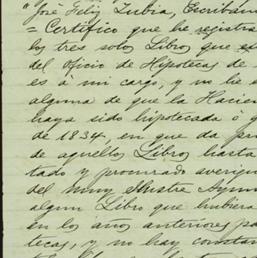 "José Feliz Zubia, Escribano
= Certifico que he registra
los tres solos Libros que es
del oficio de Hipotecas de
es á mi cargo, y no he e
alguna de que la Hacien
haya sido hipotecada ó g
de 1834, en que da prin
de aquellos Libros, hasta
tado y procurado averigu
del Muy Ilustre Ayun
algun Libro que hubiera
en los años anteriores pa
tecas, y no hay constan